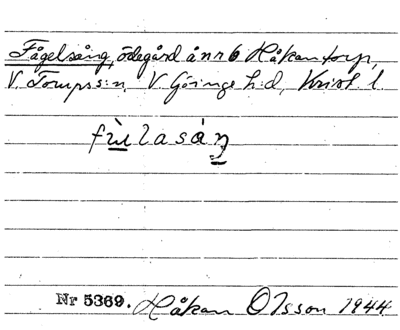 Fågelsång, ödegård å nr 6 Håkantorp,
V. Torups s:n, V. Göinge h:d, Krist. l.
fùlasáŋ
Nr 5369. Håkan Olsson 1944